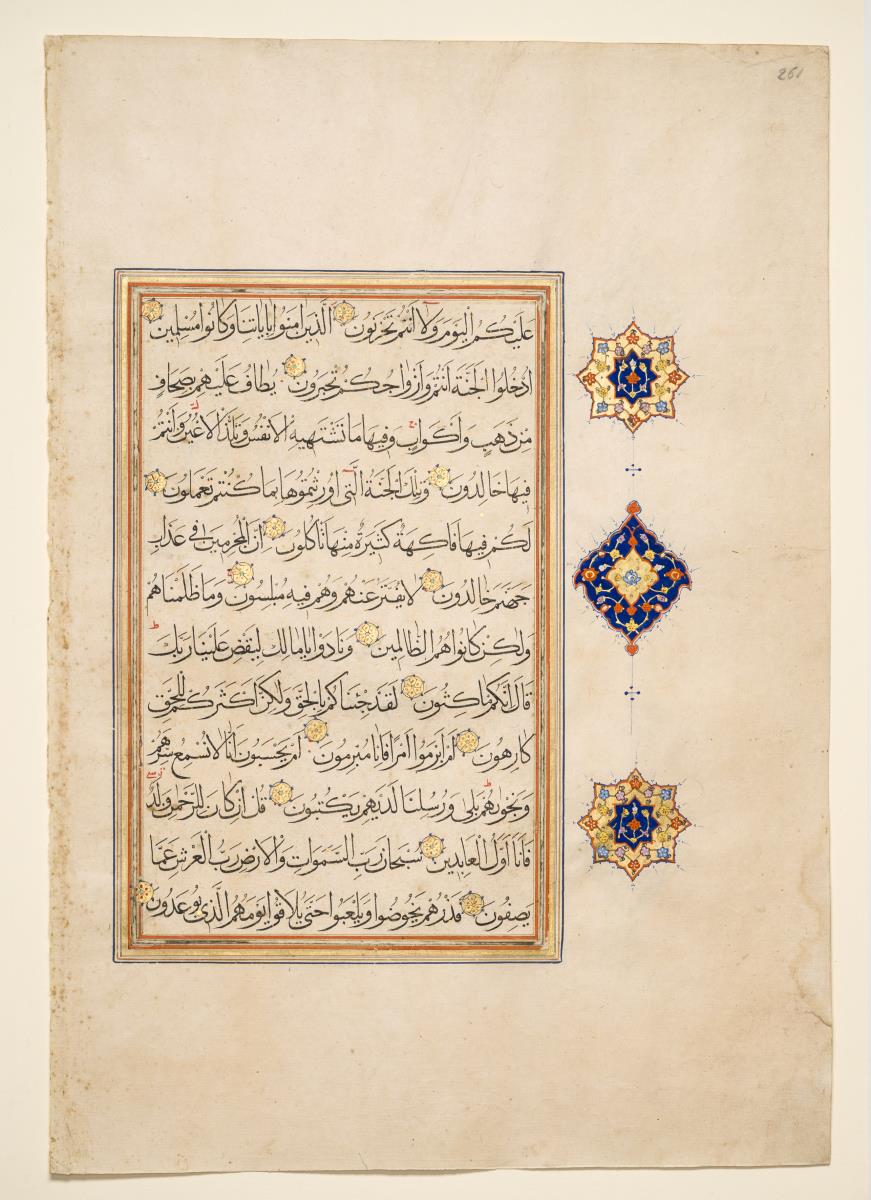 261
عليكم اليوم ولا أنتم تحزنون الذين امنوا باياتنا وكانوا مسلمين
ادخلوا الجنة أنتم وأزواجكم تحبرون يطاف عليهم بصحاف
من ذهب وأكواب وفيها ما تشتهيه الانفس وتلذ الاعين وأنتم
فيها خالدون وتلك الجنة التى اورثتموها بما كنتم تعملون
لكم فيها فاكهة كثيرة منها تاكلون ان المجرمين فى عذاب
جهنم خالدون لا يفتر عنهم وهم فيه مبلسون وما ظلمناهم
ولكن كانوا هم الظالمين ونادوا يا مالك ليقض علينا ربك
قال انكم ماكثون لقد جئناكم بالحق ولكن اكثركم للحق
كارهون أم أبرموا أمرا فانا مبرمون أم يحسبون انا لا نسمع سرهم
ونجواهم بلى ورسلنا لديهم يكتبون قل ان كان للرحمن ولد
فانا اول العابدين سبحان رب السموات والارض رب العرش عما
يصفون فذرهم يخوضوا ويلعبوا حتى يلاقوا يومهم الذى يوعدون